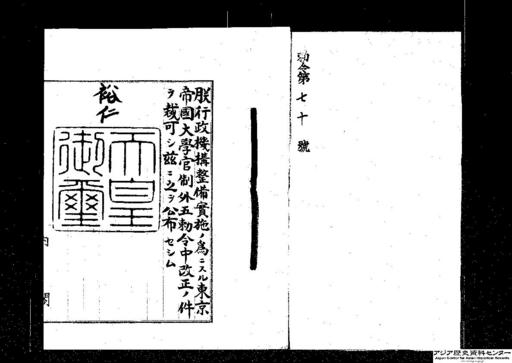 勅令第七十號
朕行政機構整備實施ノ爲ニスル東京
帝國大學官制外五勅令中改正ノ件
ヲ裁可シ玆ニ之ヲ公布セシム
裕仁
天皇
御璽
内閣
アジア歴史資料センター
Japan Center for Asian Historical Records